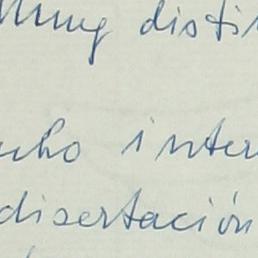 muy disti
cho inter
disertación